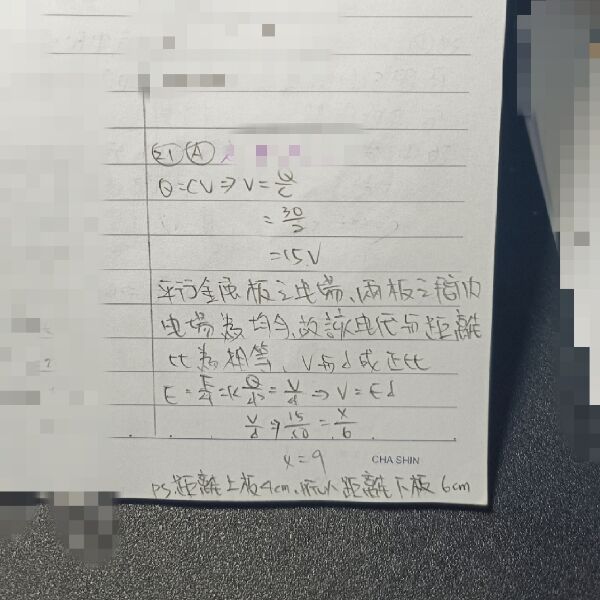 21 A
Q=CV⇒V=Q/C
=30/2
=15V
平行金屬板之電場、兩板之間的
電場為均勻,故該電位與距離
比為相等、V與d成正比
E=F/q=K Q/d²=V/d ⇒ V=Ed
V/d ⇒ 15/10=x/6
x=9
CHA SHIN
PS.距離上板4cm.所以距離下板6cm